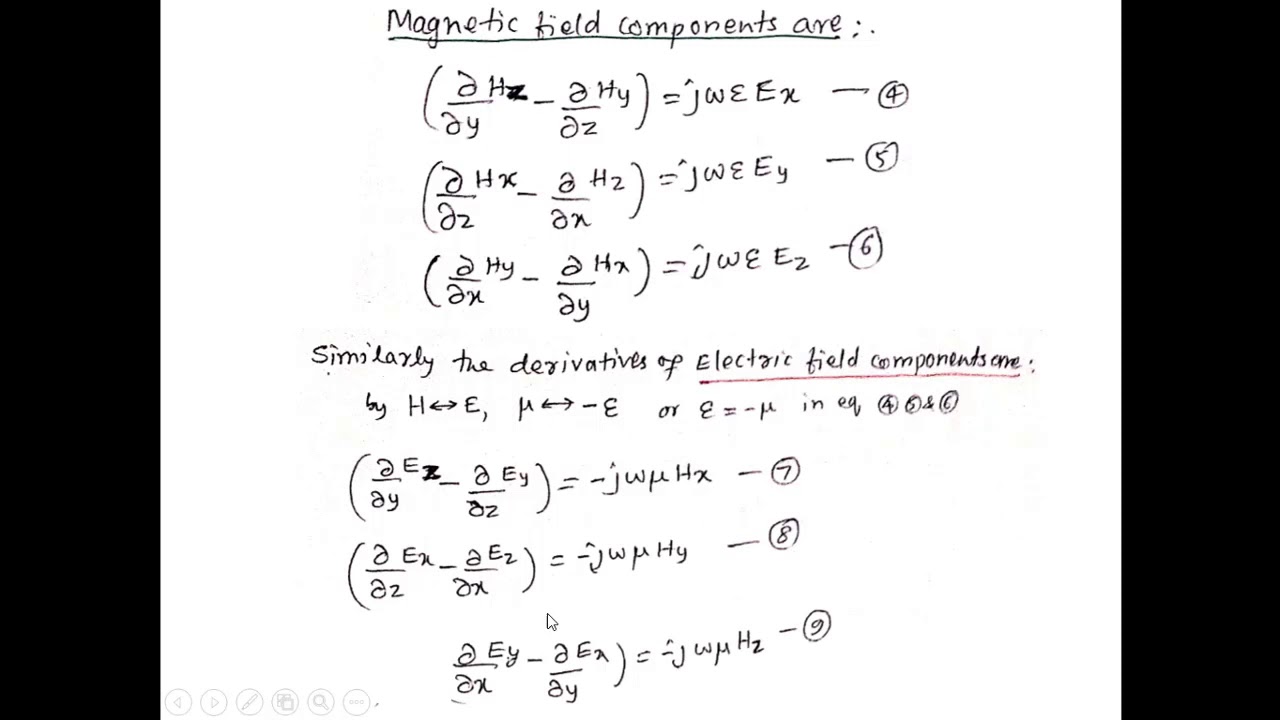 Magnetic field components are:.
(∂/∂y Hz - ∂/∂z Hy) = jωε Ex — ④
(∂/∂z Hx - ∂/∂x Hz) = jωε Ey — ⑤
(∂/∂x Hy - ∂/∂y Hx) = jωε Ez — ⑥
Similarly the derivatives of Electric field components are:
by H↔E, μ↔-ε or ε=-μ in eq ④⑤&⑥
(∂/∂y Ez - ∂/∂z Ey) = -jωμ Hx — ⑦
(∂/∂z Ex - ∂/∂x Ez) = -jωμ Hy — ⑧
∂/∂x Ey - ∂/∂y Ex) = -jωμ Hz — ⑨